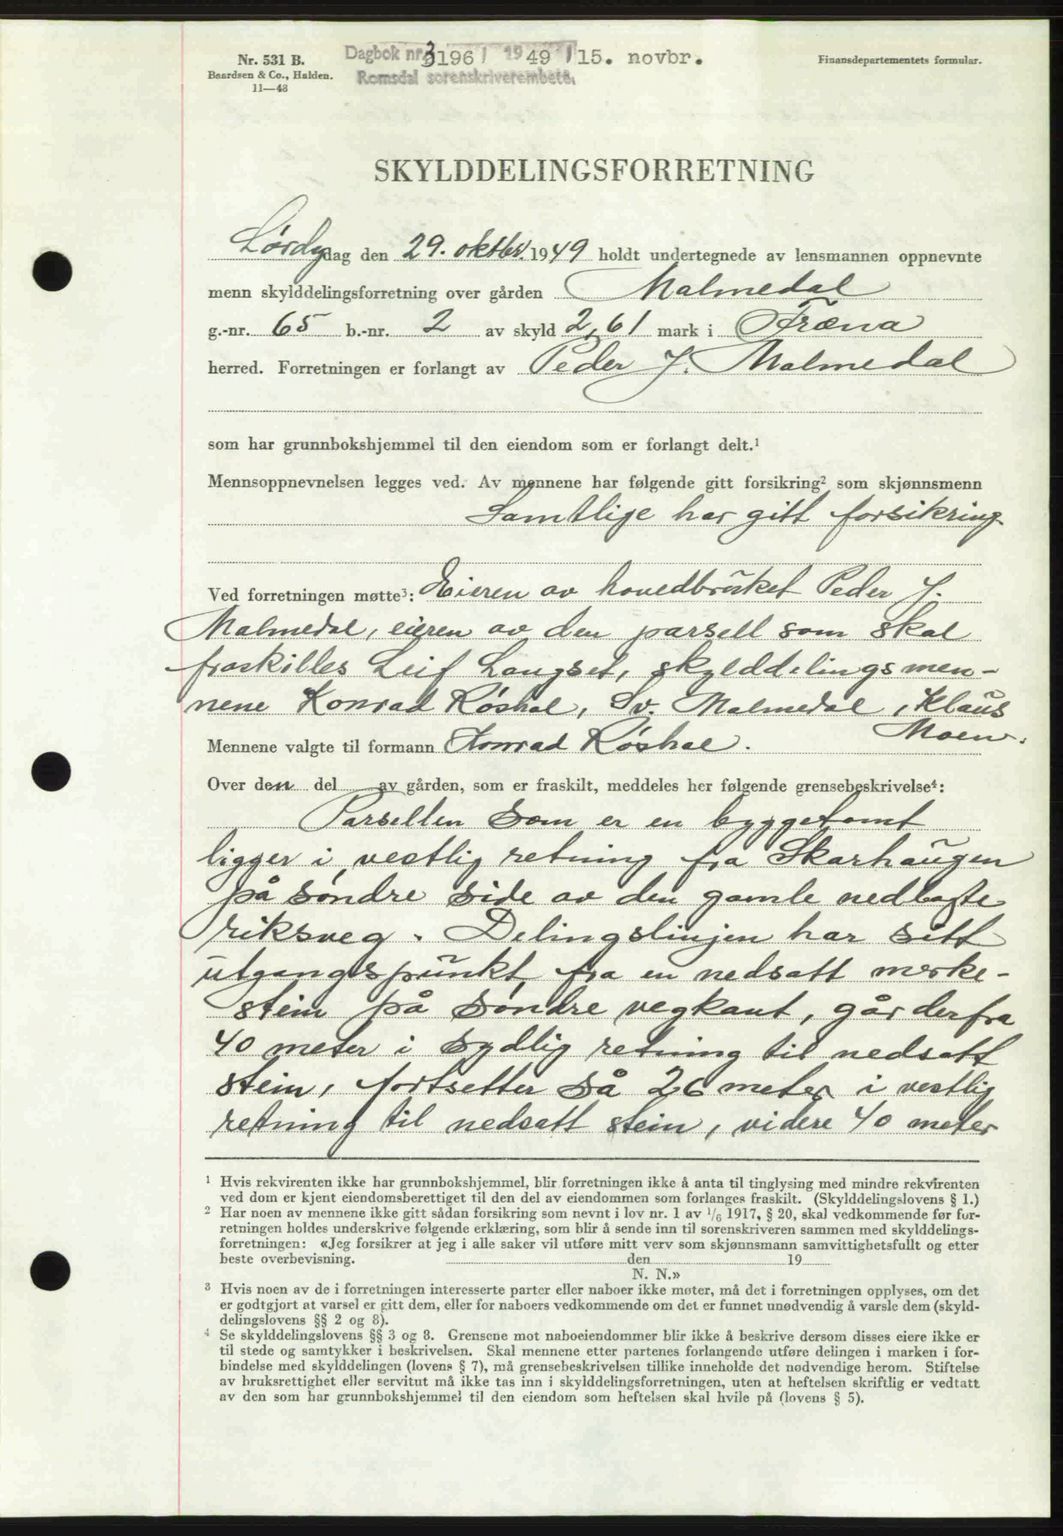 Nr. 531 B.
Baardsen & Co., Halden.
11—48
Dagbok nr. 3196 / 1949 / 15. novbr.
Romsdal sorenskriverembete.
Finansdepartementets formular.
SKYLDDELINGSFORRETNING
Lørdagdag den 29. oktbr. 1949 holdt undertegnede av lensmannen oppnevnte
menn skylddelingsforretning over gården Malmedal
g.-nr. 65 b.-nr. 2 av skyld 2,61 mark i Fræna
herred. Forretningen er forlangt av Peder J. Malmedal
som har grunnbokshjemmel til den eiendom som er forlangt delt.¹
Mennsoppnevnelsen legges ved. Av mennene har følgende gitt forsikring² som skjønnsmenn
Samtlige har gitt forsikring
Ved forretningen møtte³: Eieren av hovedbruket Peder J.
Malmedal, eieren av den parsell som skal
fraskilles Leif Langset, skylddelingsmen-
nene Konrad Røshol, Sv. Malmedal, Klaus
Moen.
Mennene valgte til formann Konrad Røshol.
Over den del av gården, som er fraskilt, meddeles her følgende grensebeskrivelse⁴:
Parsellen som er en byggetomt
ligger i vestlig retning fra Skarhaugen
på søndre side av den gamle nedlagte
riksveg. Delingslinjen har sitt
utgangspunkt fra en nedsatt merke-
stein på søndre vegkant, går derfra
40 meter i sydlig retning til nedsatt
stein, fortsetter så 26 meter i vestlig
retning til nedsatt stein, videre 40 meter
¹ Hvis rekvirenten ikke har grunnbokshjemmel, blir forretningen ikke å anta til tinglysing med mindre rekvirenten
ved dom er kjent eiendomsberettiget til den del av eiendommen som forlanges fraskilt. (Skylddelingslovens § 1.)
² Har noen av mennene ikke gitt sådan forsikring som nevnt i lov nr. 1 av ¹/₆ 1917, § 20, skal vedkommende før for-
retningen holdes underskrive følgende erklæring, som blir å sende inn til sorenskriveren sammen med skylddelings-
forretningen: «Jeg forsikrer at jeg i alle saker vil utføre mitt verv som skjønnsmann samvittighetsfullt og etter
beste overbevisning. den 19
N. N.»
³ Hvis noen av de i forretningen interesserte parter eller naboer ikke møter, må det i forretningen opplyses, om det
er godtgjort at varsel er gitt dem, eller for naboers vedkommende om det er funnet unødvendig å varsle dem (skyld-
delingslovens §§ 2 og 8).
⁴ Se skylddelingslovens §§ 3 og 8. Grensene mot naboeiendommer blir ikke å beskrive dersom disses eiere ikke er
til stede og samtykker i beskrivelsen. Skal mennene etter partenes forlangende utføre delingen i marken i for-
bindelse med skylddelingen (lovens § 7), må grensebeskrivelsen tillike inneholde det nødvendige herom. Stiftelse
av bruksrettighet eller servitut må ikke tas inn i skylddelingsforretningen, uten at heftelsen skriftlig er vedtatt
av den som har grunnbokshjemmel til den eiendom som heftelsen skal hvile på (lovens § 5).